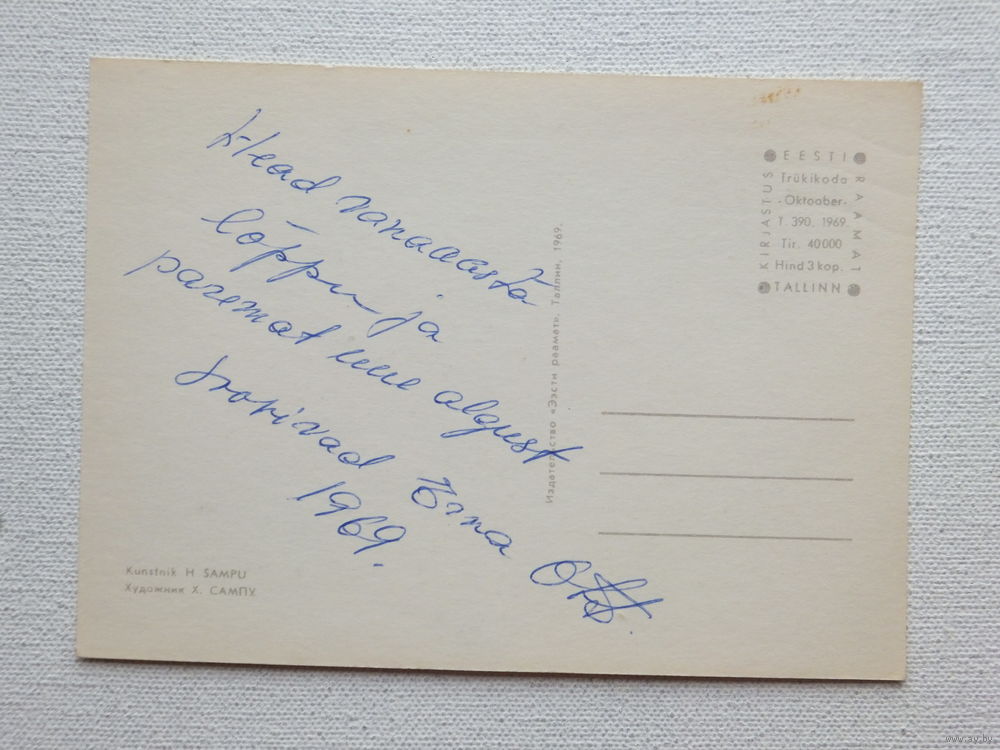 Head vanaaasta
lõppu ja
paremat uue algust
soovivad Erna Ott.
1969.
Kunstnik H SAMPU
Художник Х. САМПУ
Издательство «Ээсти раамат». Таллин, 1969.
KIRJASTUS
EESTI
RAAMAT
Trükikoda
-Oktoober-
T. 390. 1969.
Tir. 40000
Hind 3 kop.
TALLINN
www.ay.by